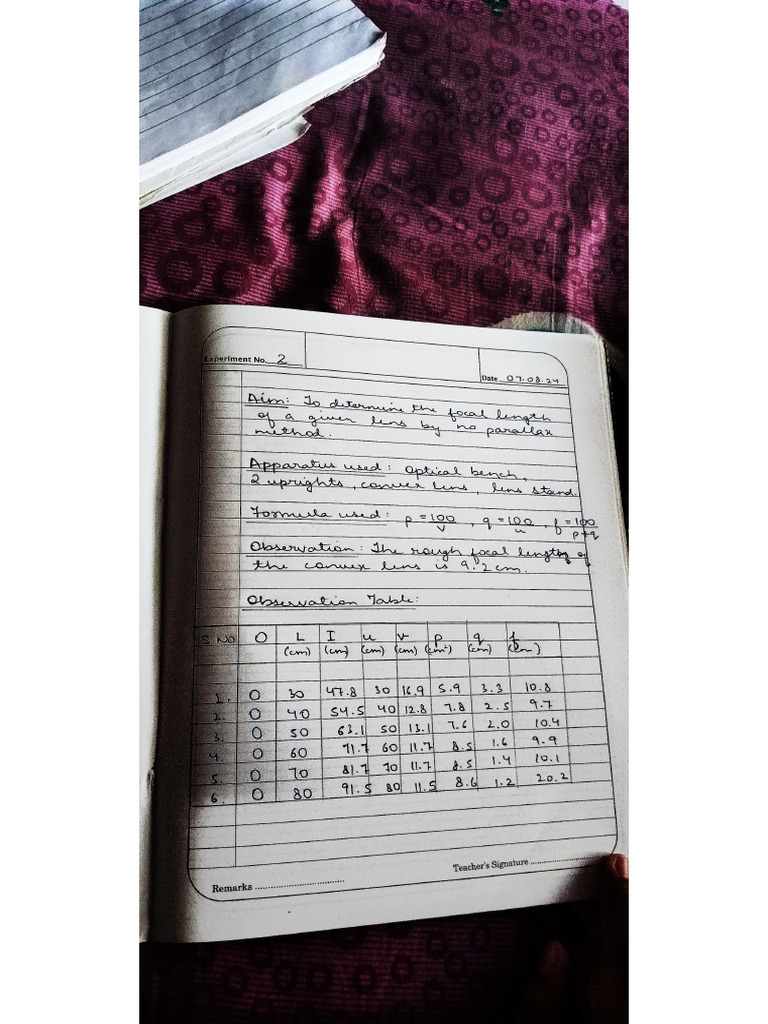 Experiment No. 2
Date 07.08.24
Aim: To determine the focal length
of a given lens by no parallax
method.
Apparatus used: Optical bench,
2 uprights, convex lens, lens stand
Formula used: p = 100/v , q = 100/u , f = 100/p+q
Observation: The rough focal length of
the convex lens is 9.2cm.
Observation Table:
S.No O L (cm) I (cm) u (cm) v (cm) p (cm) q (cm) f (cm)
1. 0 30 47.8 30 16.9 5.9 3.3 10.8
2. 0 40 54.5 40 12.8 7.8 2.5 9.7
3. 0 50 63.1 50 13.1 7.6 2.0 10.4
4. 0 60 71.7 60 11.7 8.5 1.6 9.9
5 0 70 81.7 70 11.7 8.5 1.4 10.1
6. 0 80 91.5 80 11.5 8.6 1.2 20.2
Teacher's Signature
Remarks